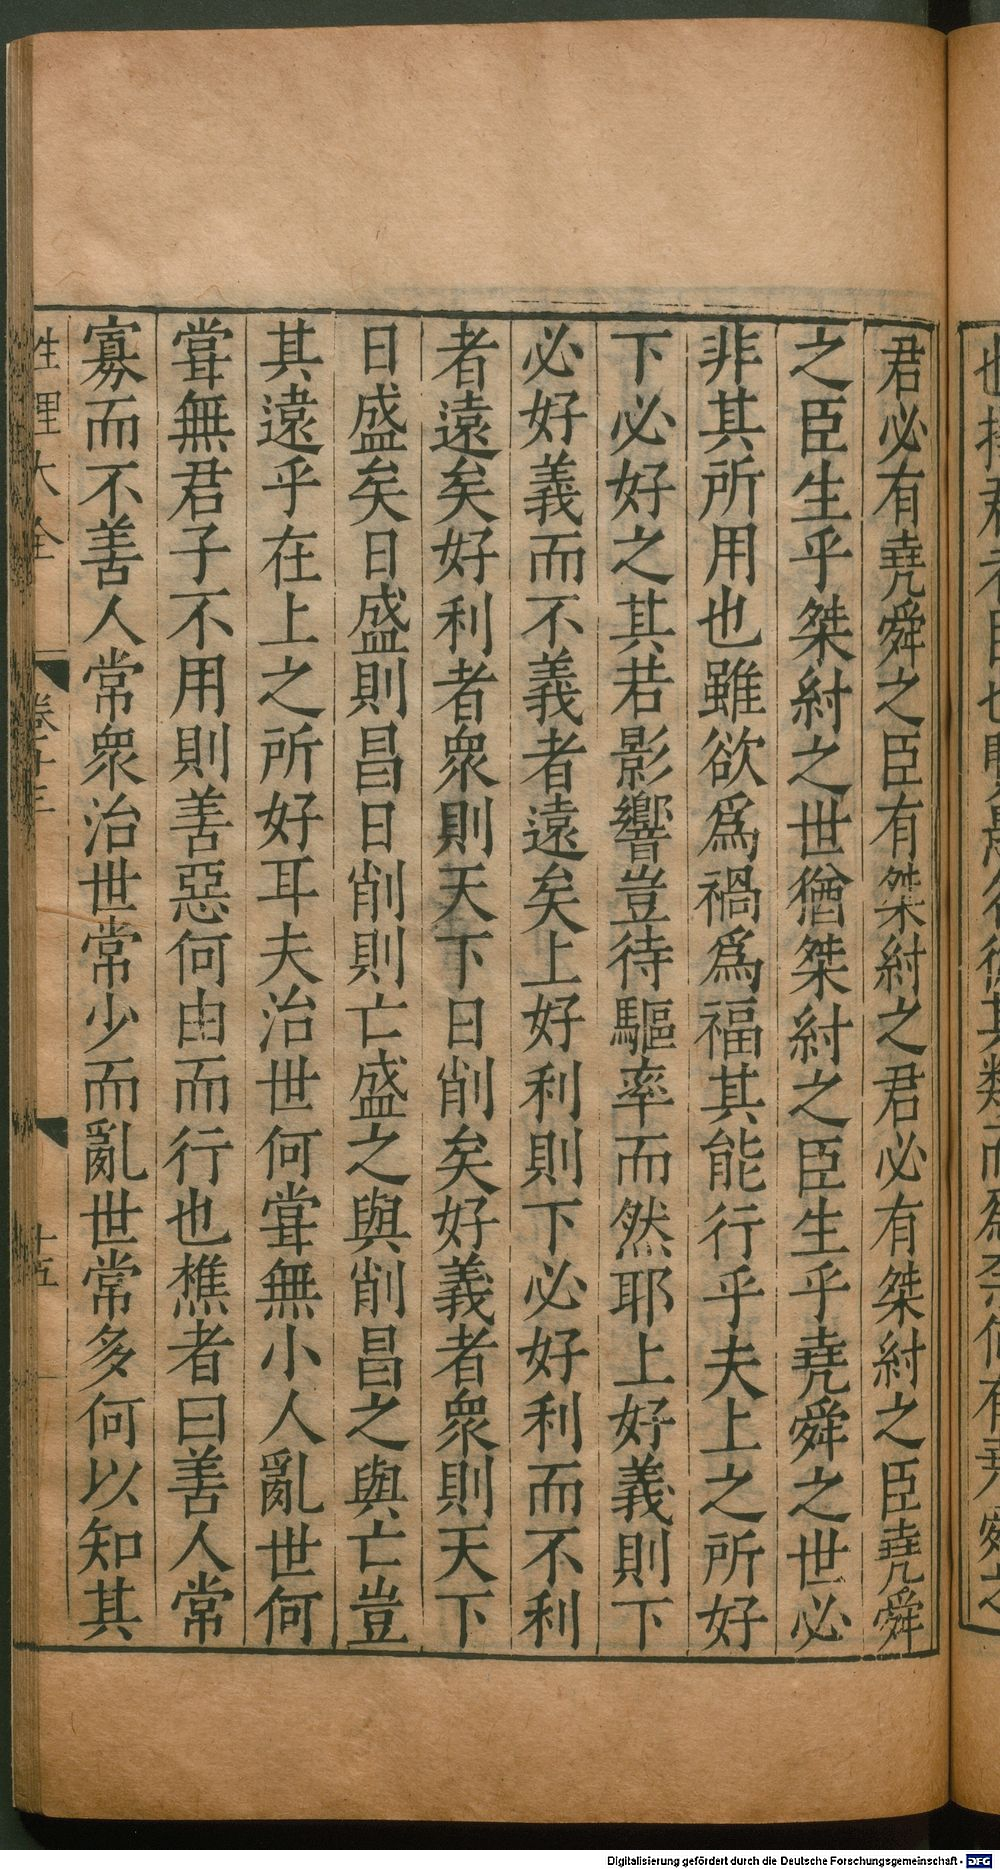 君必有堯舜之臣有桀紂之君必有桀紂之臣堯舜
之臣生乎桀紂之世猶桀紂之臣生乎堯舜之世必
非其所用也雖欲為禍為福其能行乎夫上之所好
下必好之其若影響豈待驅率而然耶上好義則下
必好義而不義者遠矣上好利則下必好利而不利
者遠矣好利者眾則天下日削矣好義者眾則天下
日盛矣日盛則昌日削則亡盛之與削昌之與亡豈
其遠乎在上之所好耳夫治世何甞無小人亂世何
甞無君子不用則善惡何由而行也樵者曰善人常
寡而不善人常眾治世常少而亂世常多何以知其
性理大全 卷十三 十五
Digitalisierung gefördert durch die Deutsche Forschungsgemeinschaft - DFG